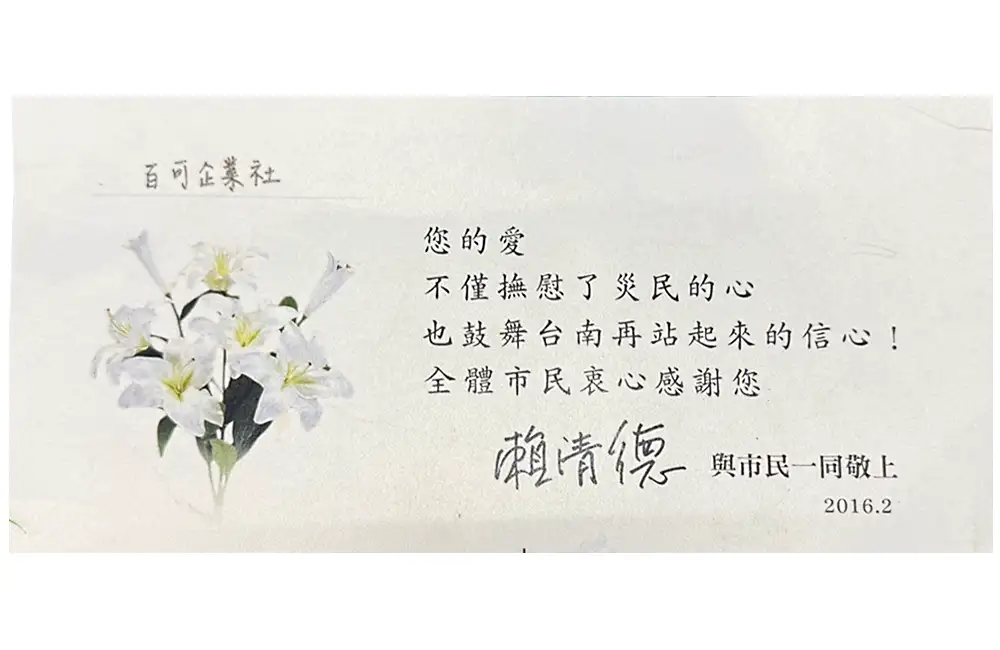 百可企業社
您的愛
不僅撫慰了災民的心
也鼓舞台南再站起來的信心！
全體市民衷心感謝您
賴清德 與市民一同敬上
2016.2